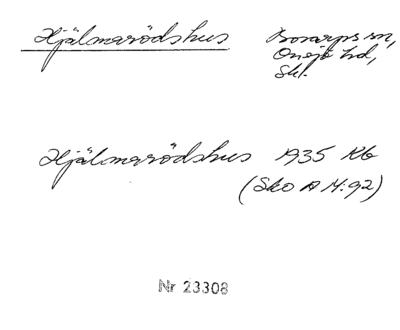 Hjälmarödshus
Bosarps sn,
Onsjö hd,
Sk.
Hjälmarödshus 1935 Kb
(Sko A 14:92)
Nr 23308